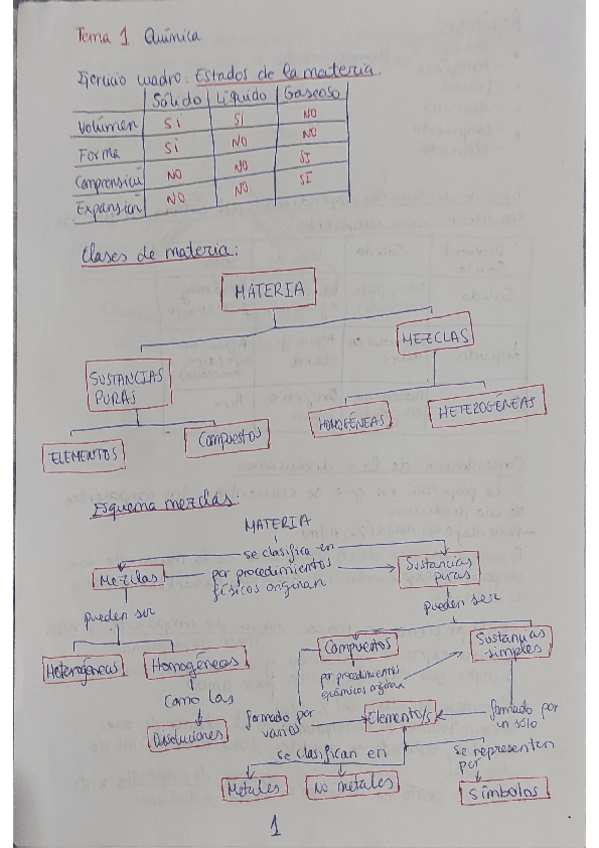 Tema 1. Química
Ejercicio cuadro. Estados de la materia.
Sólido Líquido Gaseoso
Volúmen SÍ SÍ NO
Forma SÍ NO NO
Comprensión NO NO SI
Expansión NO NO SI
Clases de materia:
MATERIA
MEZCLAS
SUSTANCIAS
PURAS
HOMOGÉNEAS HETEROGÉNEAS
ELEMENTOS Compuestos
Esquema mezclas:
MATERIA
se clasifica en
Mezclas por procedimientos Sustancias
físicos originan puras
pueden ser pueden ser
Heterogéneas Homogéneas Compuestos Sustancias
simples
por procedimientos
químicos originan
como las
formado por Elemento/s formado por
varios un sólo
Disoluciones
se clasifican en se representen
por
Metales No metales Símbolos
1